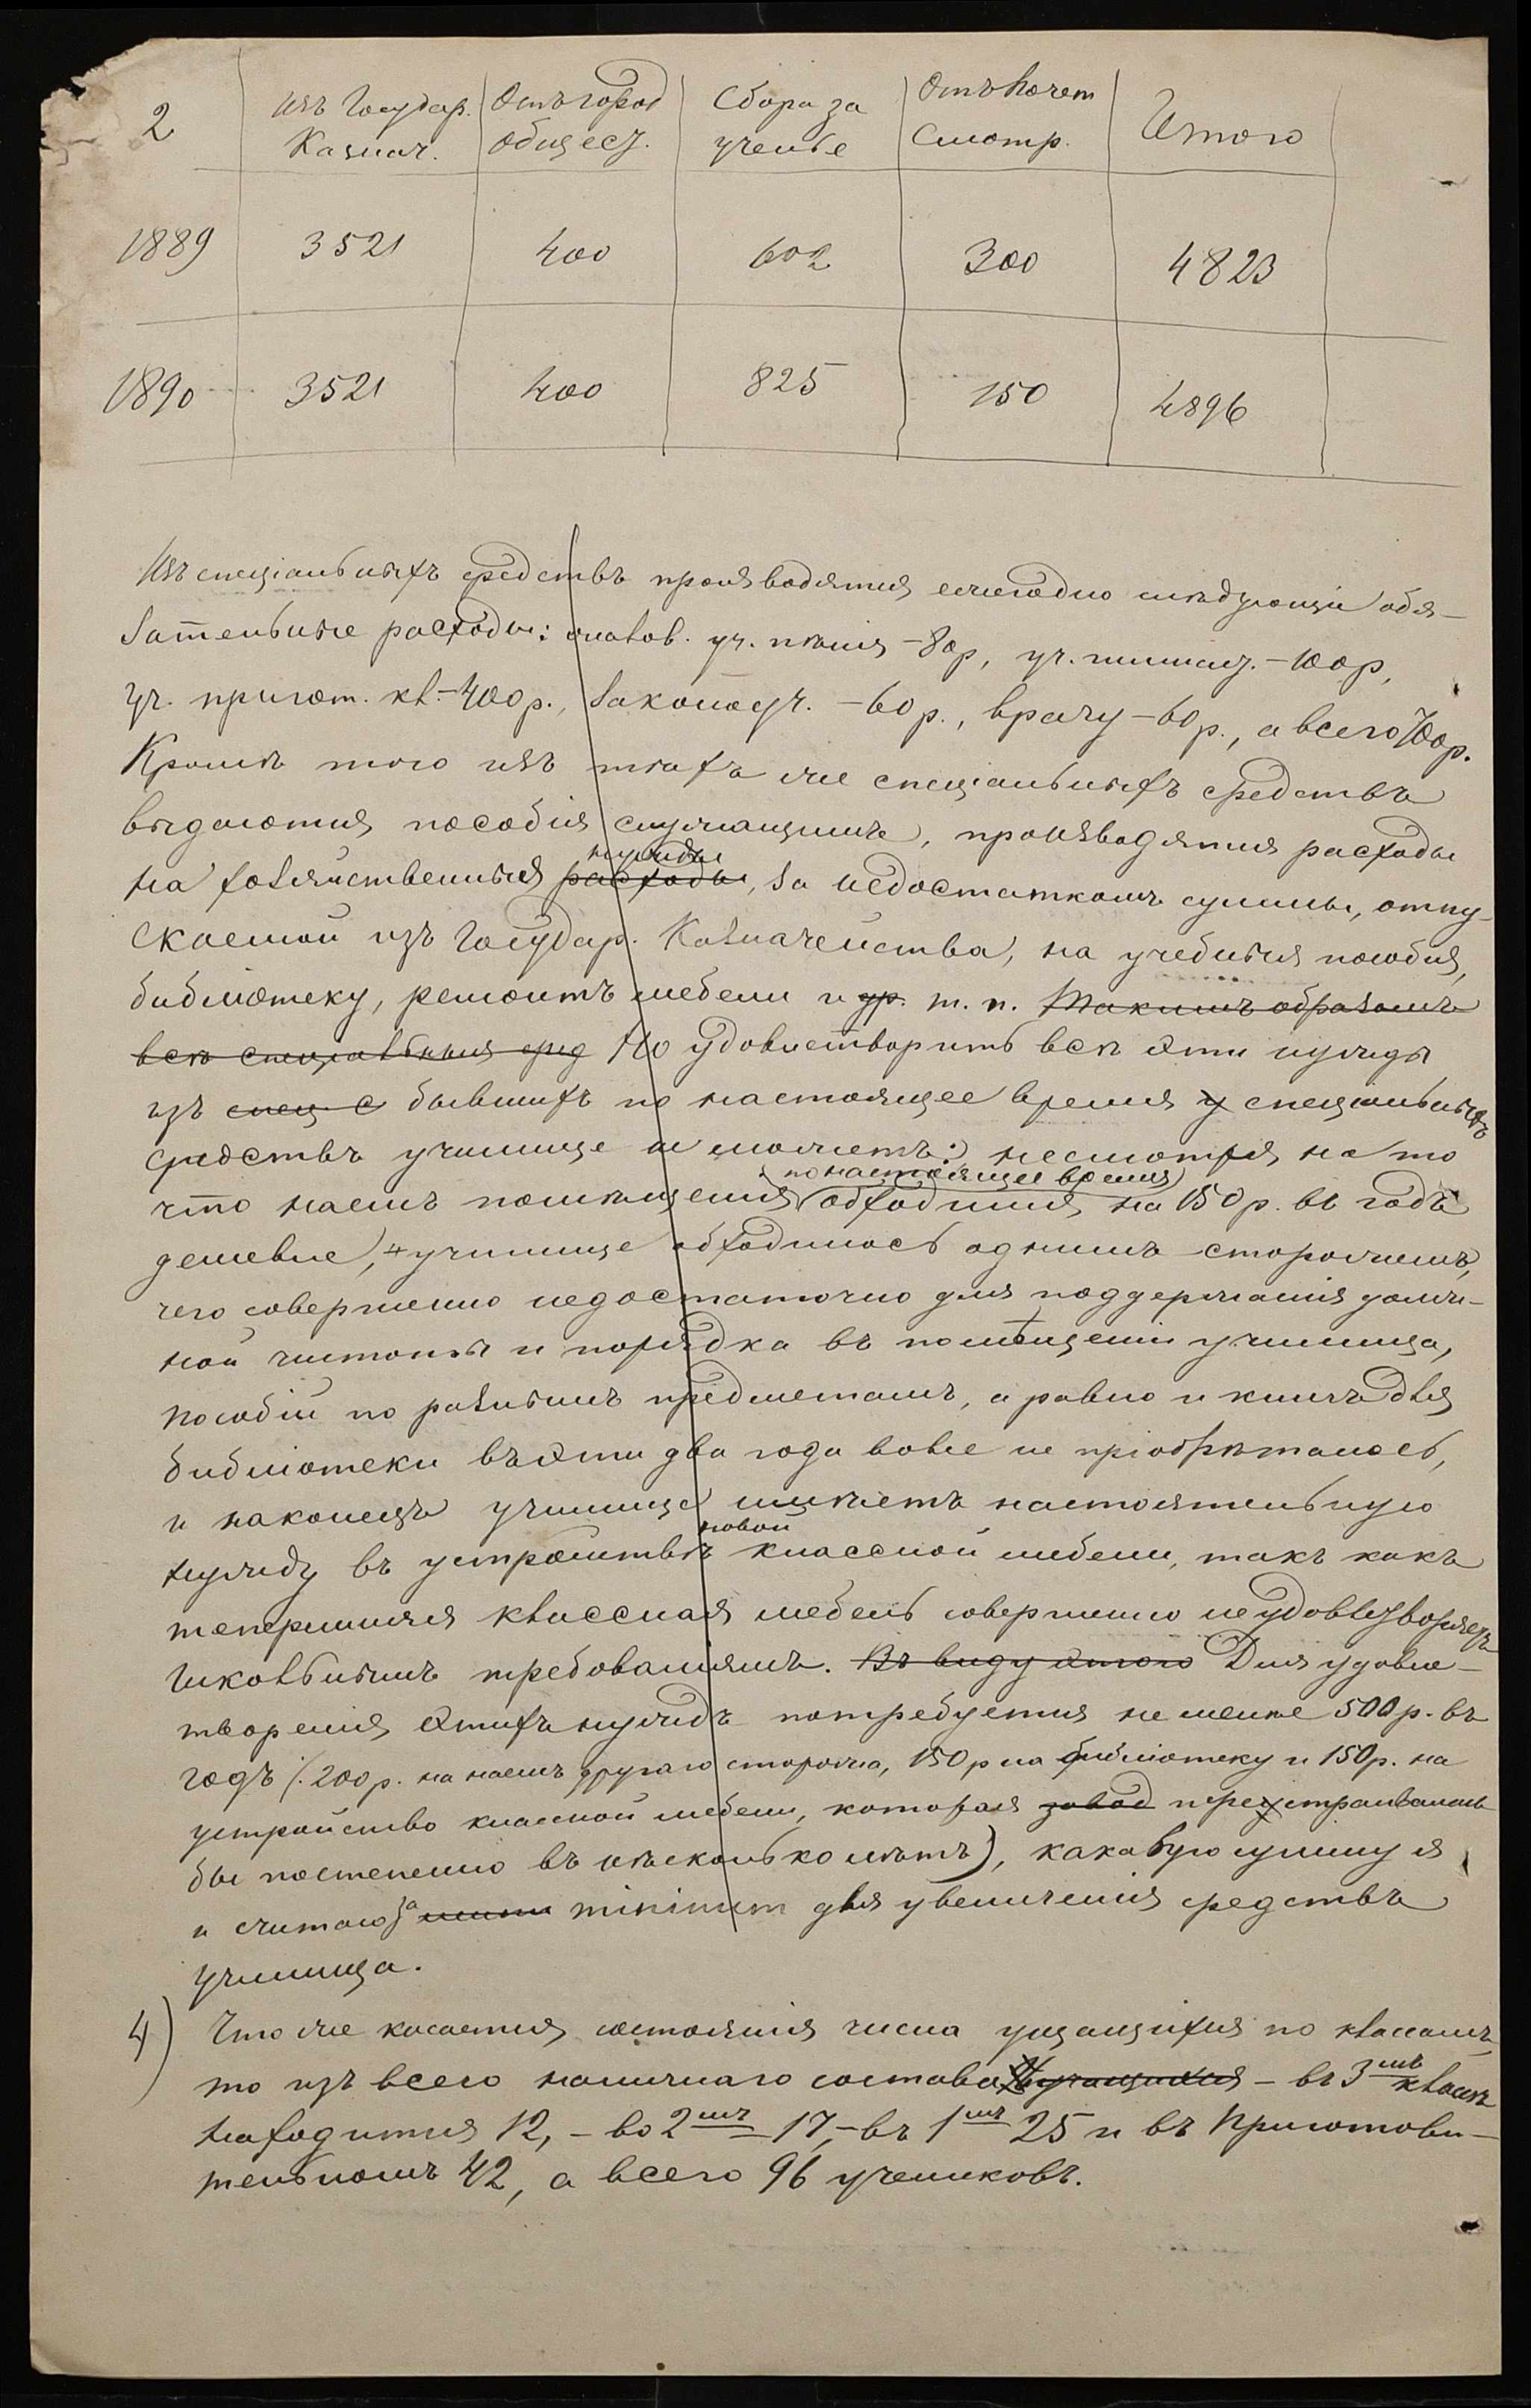 2 Изъ Государ. Казнач. Отъ город общест. Сбора за ученье Отъ Почет Смотр. Итого
1889 3521 400 602 300 4823
1890 3521 400 825 150 4896
Изъ спеціальныхъ средствъ производятся ежегодно слѣдующіе обя-
зательные расходы: жалов. уч. пѣнія -80р, уч. гимнаст. -100р,
уч. пригот. кл.-400р., законоуч. -60р., врачу -60р., а всего 700р.
Кромѣ того изъ тѣхъ же спеціальныхъ средствъ
выдаются пособія служащимъ, производятся расходы
на хозяйственныя расходы нужды, за недостаткомъ суммы, отпу-
скаемой изъ Государ. Казначейства, на учебныя пособія,
библіотеку, ремонтъ мебели и др. т. п. Такимъ образомъ
всѣ спеціальныя сред Но удовлетворить всѣ эти нужды
изъ спец. с бывшихъ по настоящее время у спеціальныхъ
средствъ училище не можетъ: несмотря на то
что наемъ помѣщенія по настоящее время обходился на 150р. въ годъ
дешевле, училище обходилось однимъ сторожемъ,
чего совершенно недостаточно для поддержанія долж-
ной чистоты и порядка въ помѣщеніи училища,
пособій по разнымъ предметамъ, а равно и книгъ для
библіотеки въ эти два года вовсе не пріобрѣталось,
и наконецъ училище имѣетъ настоятельную
нужду въ устройствѣ новой классной мебели, такъ какъ
теперешняя классная мебель совершенно не удовлетворяетъ
школьнымъ требованіямъ. Въ виду этого Для удовле-
творенія этихъ нуждъ потребуется не менѣе 500р. въ
годъ (: 200р. на наемъ другаго сторожа, 150р на библіотеку и 150р. на
устройство классной мебели, которая завод переустраивалась
бы постепенно въ нѣсколько лѣтъ), каковую сумму я
и считаю за minimum для увеличенія средствъ
училища.
4) Что же касается состоянія числа учащихся по классамъ,
то изъ всего наличнаго состава учащихся - въ 3мъ классѣ
находится 12, - во 2мъ 17, - въ 1мъ 25 и въ Приготови-
тельномъ 42, а всего 96 учениковъ.